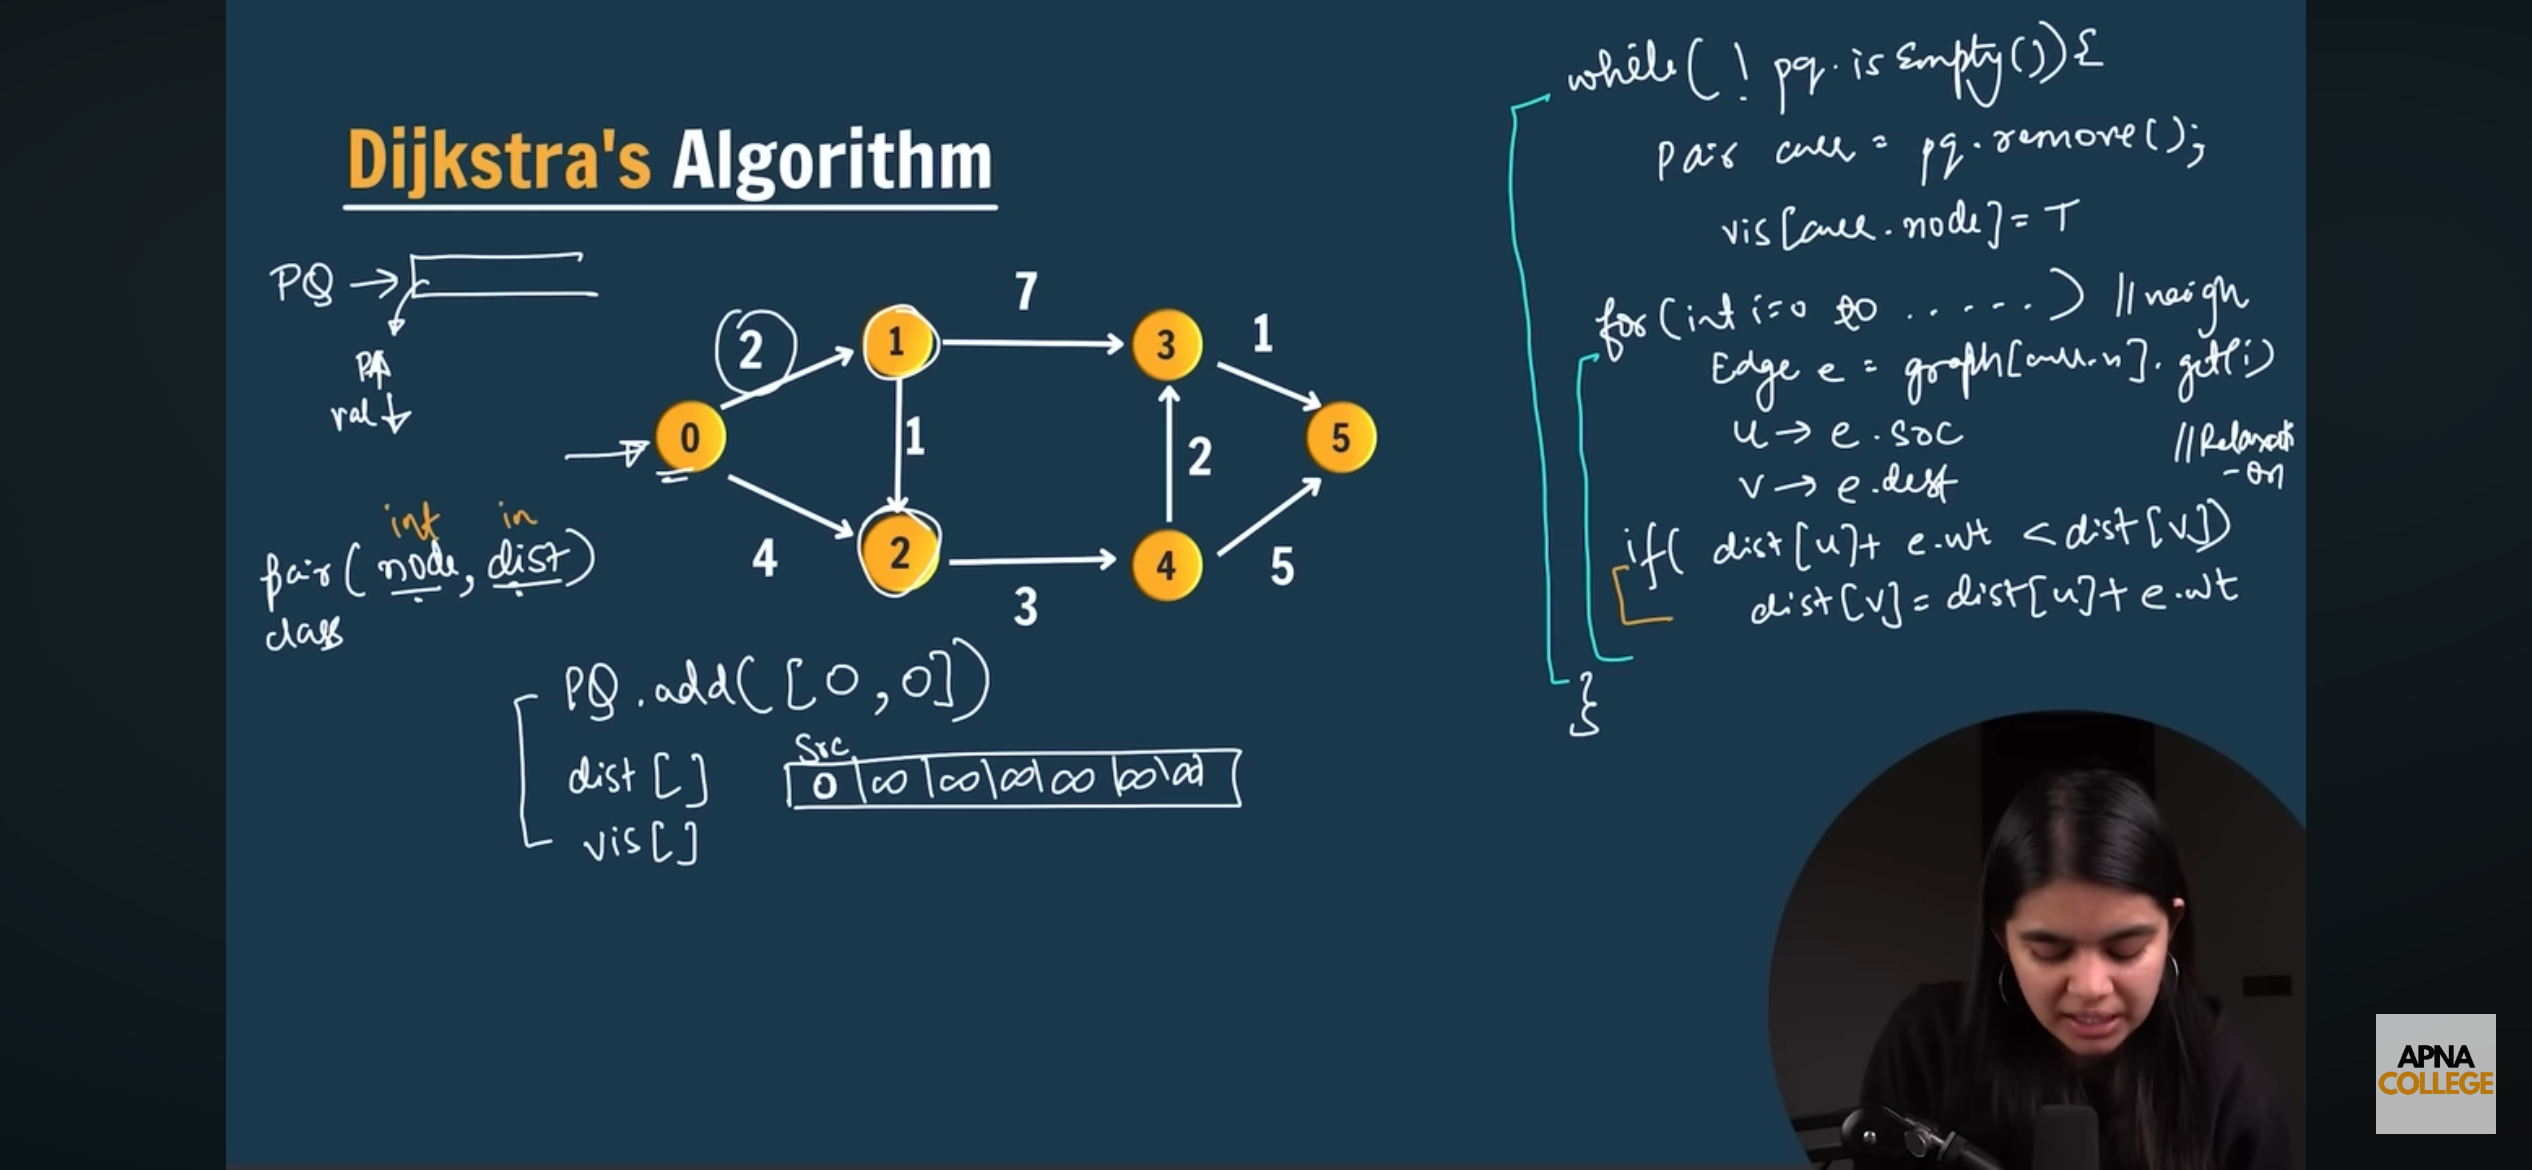 Dijkstra's Algorithm
PQ →
PA
val ↓
pair(node, dist)
int
in
class
0
1
2
3
4
5
2
7
1
1
4
3
2
5
PQ.add([0,0])
dist[]
src
0 ∞ ∞ ∞ ∞ ∞ ∞
vis[]
while(!pq.isEmpty()){
Pair curr = pq.remove();
vis[curr.node]=T
for(int i=0 to ......) //neigh
Edge e = graph[curr.n].get(i)
u → e.src
v → e.dest
//Relaxati
-on
if( dist[u]+ e.wt < dist[v])
dist[v]= dist[u]+ e.wt
}
APNA
COLLEGE